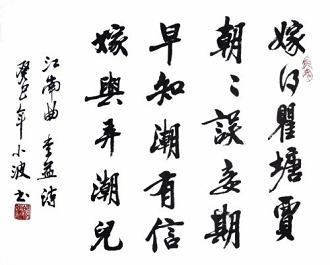 嫁得瞿塘賈
朝々誤妾期
早知潮有信
嫁與弄潮兒
江南曲 李益詩
癸巳年 小波书